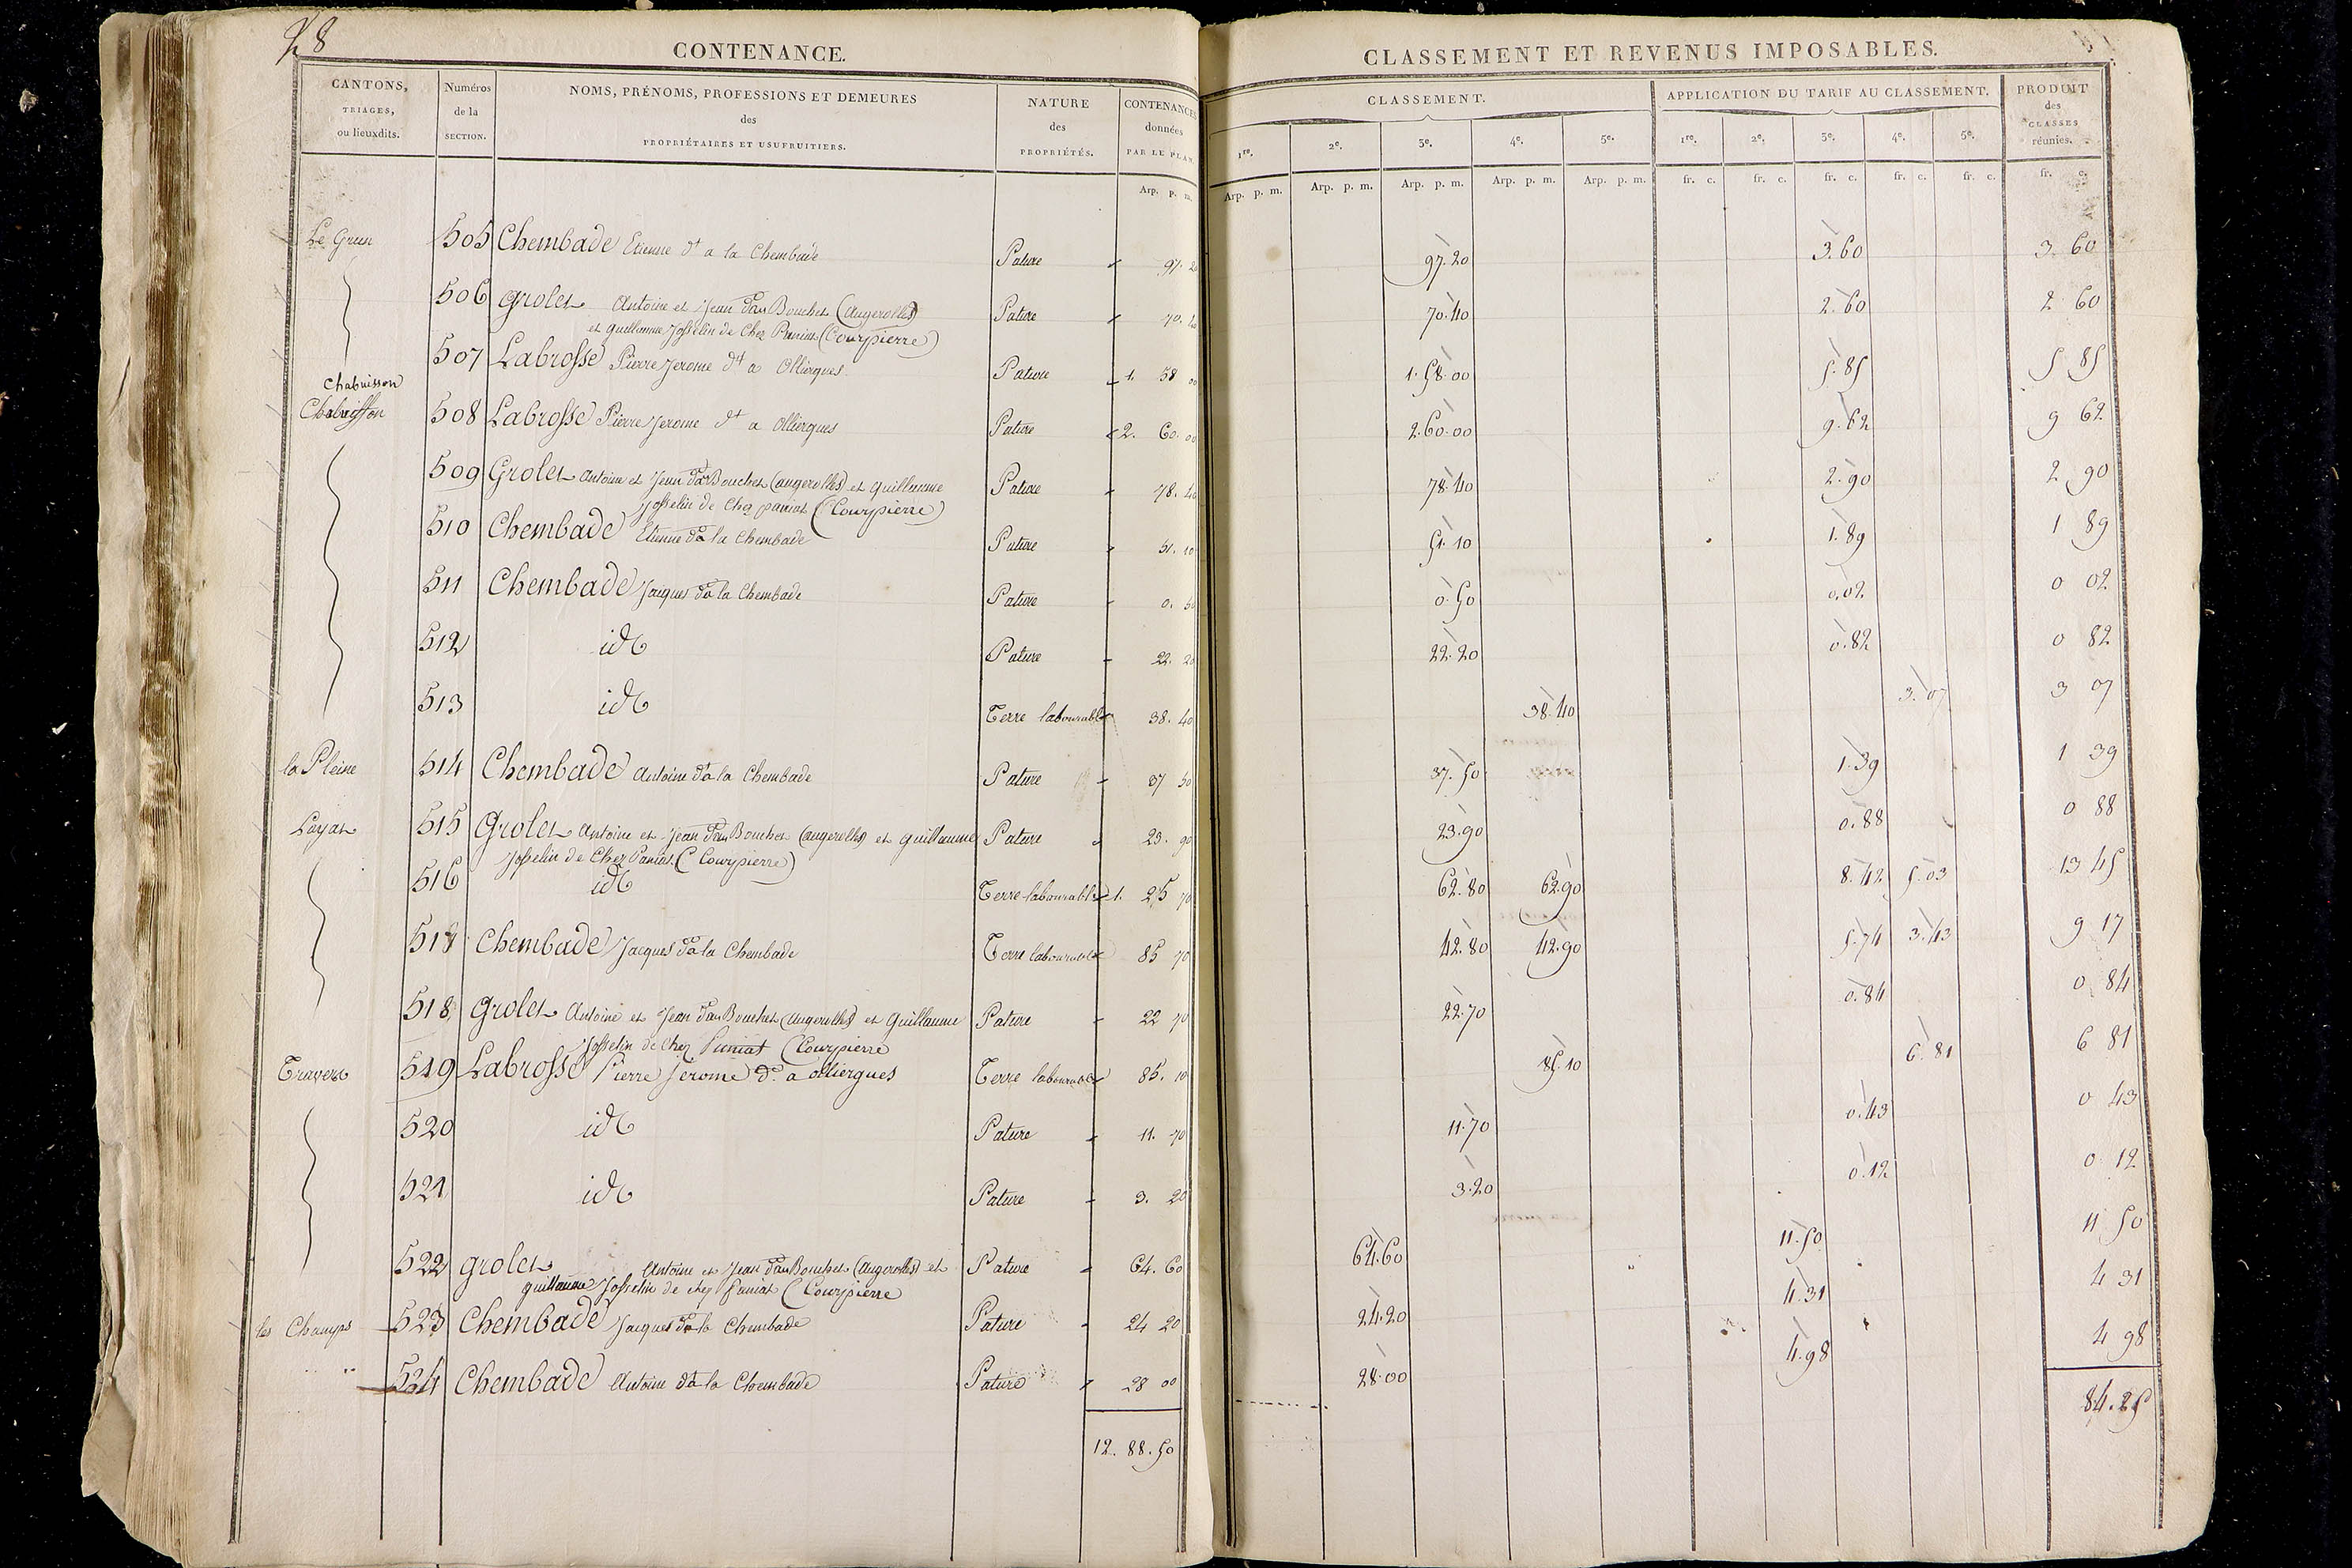 28
CONTENANCE.
CANTONS, TRIAGES, ou lieuxdits.
Numéros de la SECTION.
NOMS, PRÉNOMS, PROFESSIONS ET DEMEURES des PROPRIÉTAIRES ET USUFRUITIERS.
NATURE des PROPRIÉTÉS.
CONTENANCES données PAR LE PLAN.
Arp. p. m.
CLASSEMENT ET REVENUS IMPOSABLES.
CLASSEMENT.
1re. 2e. 3e. 4e. 5e.
Arp. p. m. Arp. p. m. Arp. p. m. Arp. p. m. Arp. p. m.
APPLICATION DU TARIF AU CLASSEMENT.
1re. 2e. 3e. 4e. 5e.
fr. c. fr. c. fr. c. fr. c. fr. c.
PRODUIT des CLASSES réunies.
fr. c.
Le Grun 505 Chembade Etienne dt a la Chembade Pature 97. 20 97.20 3.60 3 60
506 Grolet Antoine et Jean dt au Bouchet (Augerolles) Pature 70. 40 70.40 2.60 2 60
et Guillaume Josselin de Chez Paniat (Courpierre)
507 Labrosse Pierre Jerome dt a Olliergues Pature 1. 58 00 1.58.00 5.85 5 85
Chabuisson
Chabuisson 508 Labrosse Pierre Jerome dt a Olliergues Pature 2. 60. 00 2.60.00 9.62 9 62
509 Grolet Antoine et Jean dt au Bouchet (augerolles) et Guillaume Pature 78. 40 78.40 2.90 2 90
Josselin de Chez paniat (Courpierre)
510 Chembade Etienne dt a la Chembade Pature 51. 10 51.10 1.89 1 89
511 Chembade Jacques dt a la Chembade Pature 0. 50 0.50 0.02 0 02
512 id Pature 22. 20 22.20 0.82 0 82
513 id Terre labourable 38. 40 38.40 3.07 3 07
la Pleine 514 Chembade Antoine dt a la Chembade Pature 37 50 37.50 1.39 1 39
Layat 515 Grolet Antoine et Jean dt au Bouchet (augerolles) et Guillaume Pature 23. 90 23.90 0.88 0 88
Josselin de Chez Paniat (Courpierre)
516 id Terre labourable 1. 25 70 62.80 62.90 8.42 5.03 13 45
517 Chembade Jacques dt a la Chembade Terre labourable 85 70 42.80 42.90 5.74 3.43 9 17
518 Grolet Antoine et Jean dt au Bouchet (Augerolles) et Guillaume Pature 22 70 22.70 0.84 0 84
Josselin de Chez Paniat (Courpierre
Travers 519 Labrosse Pierre Jerome dt a olliergues Terre labourable 85. 10 85.10 6.81 6 81
520 id Pature 11. 70 11.70 0.43 0 43
521 id Pature 3. 20 3.20 0.12 0 12
522 Grolet Antoine et Jean dt au Bouchet (Augerolles) et Pature 64. 60 64.60 11.50 11 50
guillaume Josselin de chez Paniat (Courpierre
les Champs 523 Chembade Jacques dt a la Chembade Pature 24 20 24.20 4.31 4 31
524 Chembade Antoine dt a la Chembade Pature 28 00 28.00 4.98 4 98
12. 88. 50
84.25